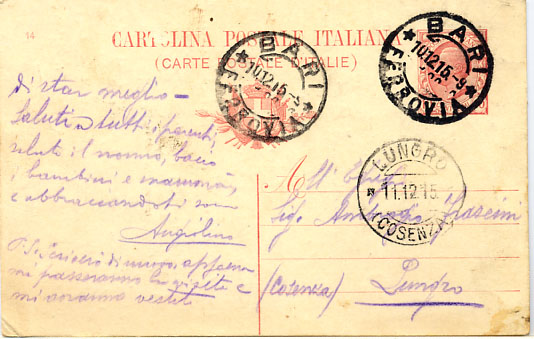 14
CARTOLINA POSTALE ITALIANA
(CARTE POSTALE D'ITALIE)
BARI
10.12.15-9
FERROVIA
BARI
10.12.15-9
FERROVIA
di star meglio -
Saluta tutti i parenti,
saluta il nonno, bacia
i bambini e mammà,
e abbracciandoti sono
Angiolino
P.S. Scrivero di nuovo, appena
mi passeranno la visita e
mi avranno vestito
LUNGRO
11.12.15
(COSENZA)
All'
Sig.
(Cosenza) Lungro